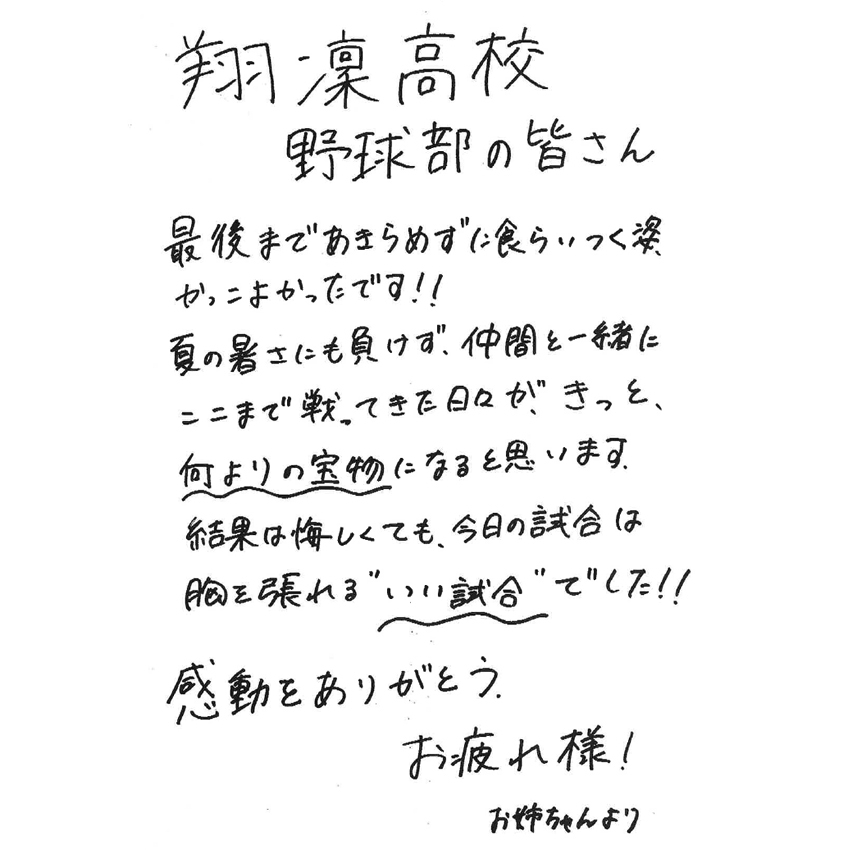 翔凜高校
野球部の皆さん
最後まであきらめずに食らいつく姿、
かっこよかったです!!
夏の暑さにも負けず、仲間と一緒に
ここまで戦ってきた日々が、きっと、
何よりの宝物になると思います。
結果は悔しくても、今日の試合は
胸を張れる"いい試合"でした!!
感動をありがとう。
お疲れ様!
お姉ちゃんより